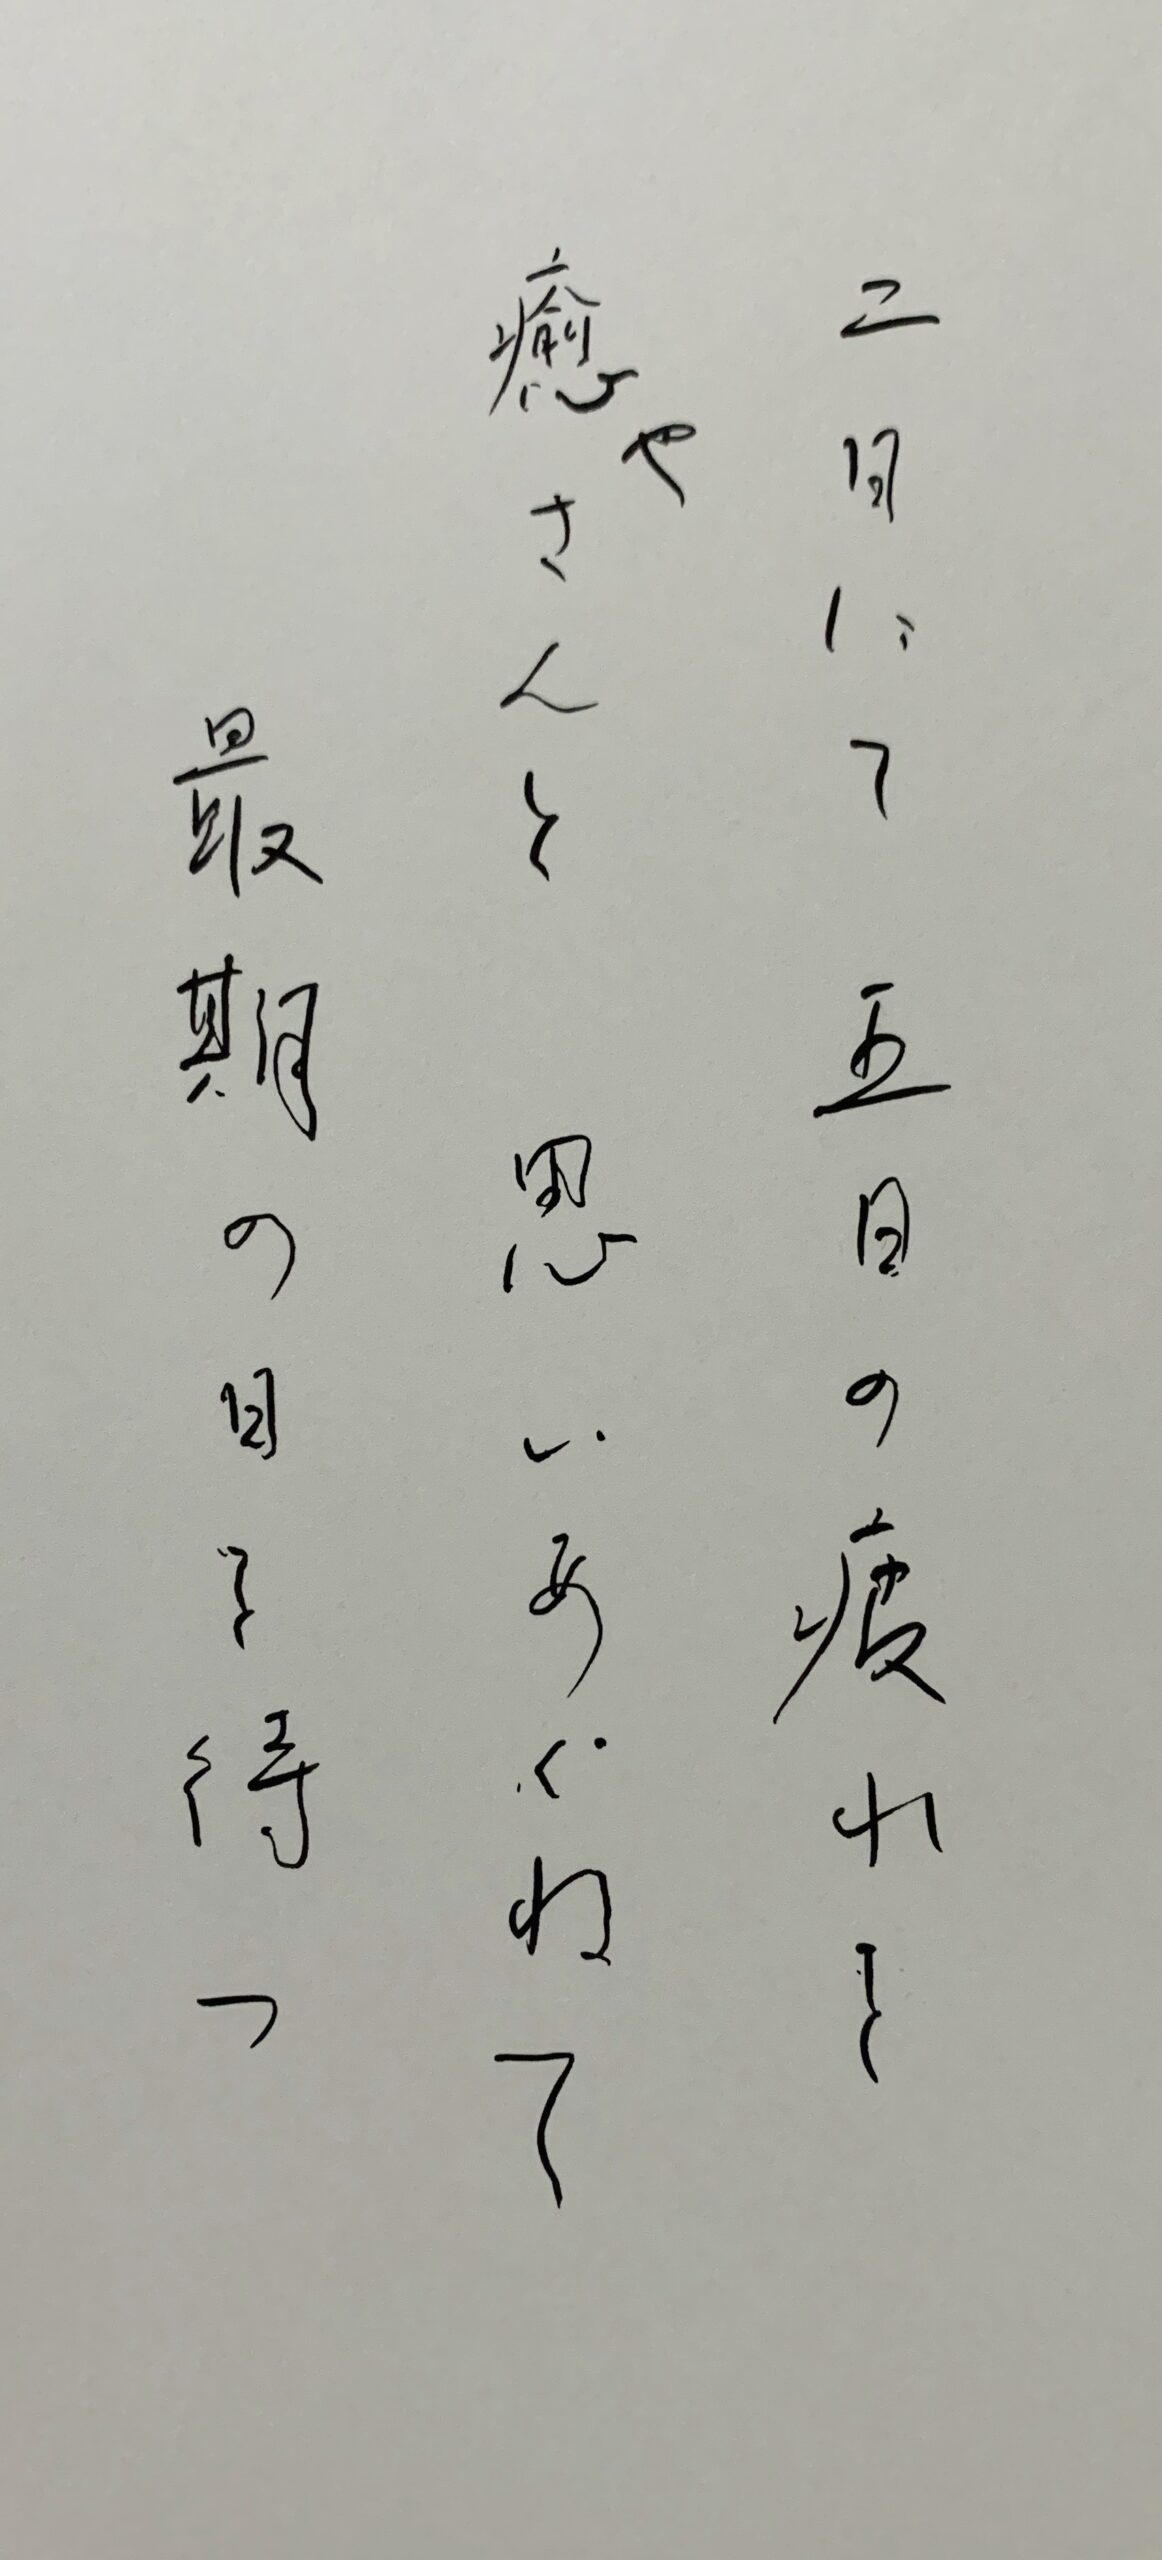 二日にて 五日の疲れを
癒やさんと 思いあぐねて
最期の日を待つ